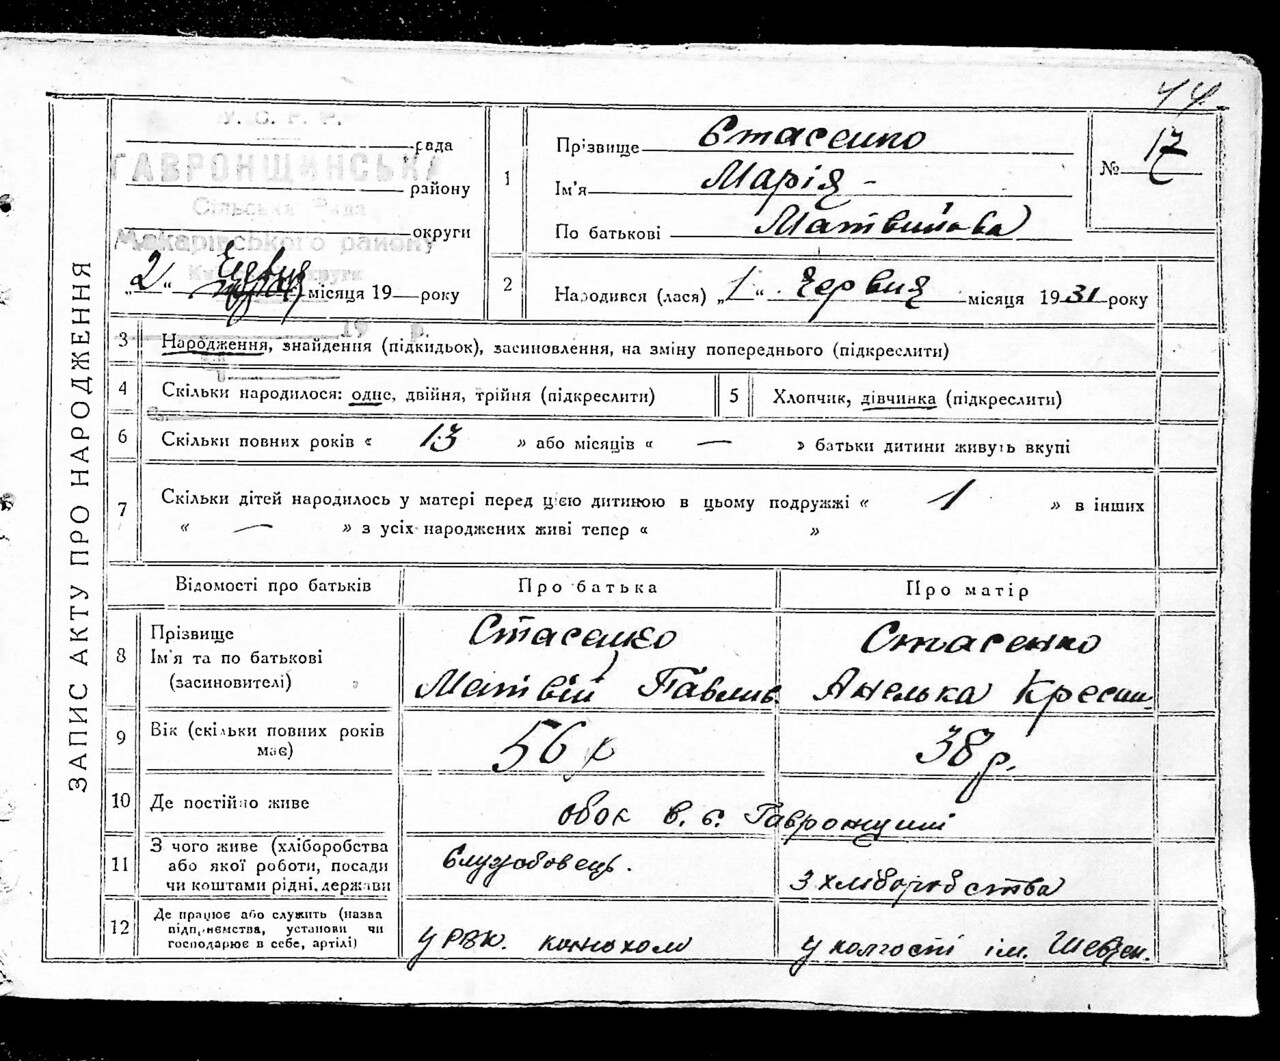 14
У. С. Р. Р.
рада
ГАВРОНЩИНСЬКА
району
Сільська Рада
округи
Макарівського району
„2“ Червня місяця 19 року
19 р.
ЗАПИС АКТУ ПРО НАРОДЖЕННЯ
1 Прізвище Стасенко
Ім'я Марія -
По батькові Матвиівва
№ 17
2 Народився (лася) „1“ Червня місяця 1931 року
3 Народження, знайдення (підкидьок), засиновлення, на зміну попереднього (підкреслити)
4 Скільки народилося: одне, двійня, трійня (підкреслити) 5 Хлопчик, дівчинка (підкреслити)
6 Скільки повних років « 13 » або місяців « — » батьки дитини живуть вкупі
7 Скільки дітей народилось у матері перед цією дитиною в цьому подружжі « 1 » в інших
« — » з усіх народжених живі тепер « »
Відомості про батьків Про батька Про матір
8 Прізвище Стасенко Стасенко
Ім'я та по батькові
(засиновителі) Матвій Павлив. Анелька
9 Вік (скільки повних років має) 56 р 38 р.
10 Де постійно живе в. с. Гавронщині
11 З чого живе (хліборобства
або якої роботи, посади
чи коштами рідні, держави Службовець. З хліборобства
12 Де працює або служить (назва
підприємства, установи чи
господарює в себе, артілі) у РВК. конюхом у колгоспі ім. Шевчен.